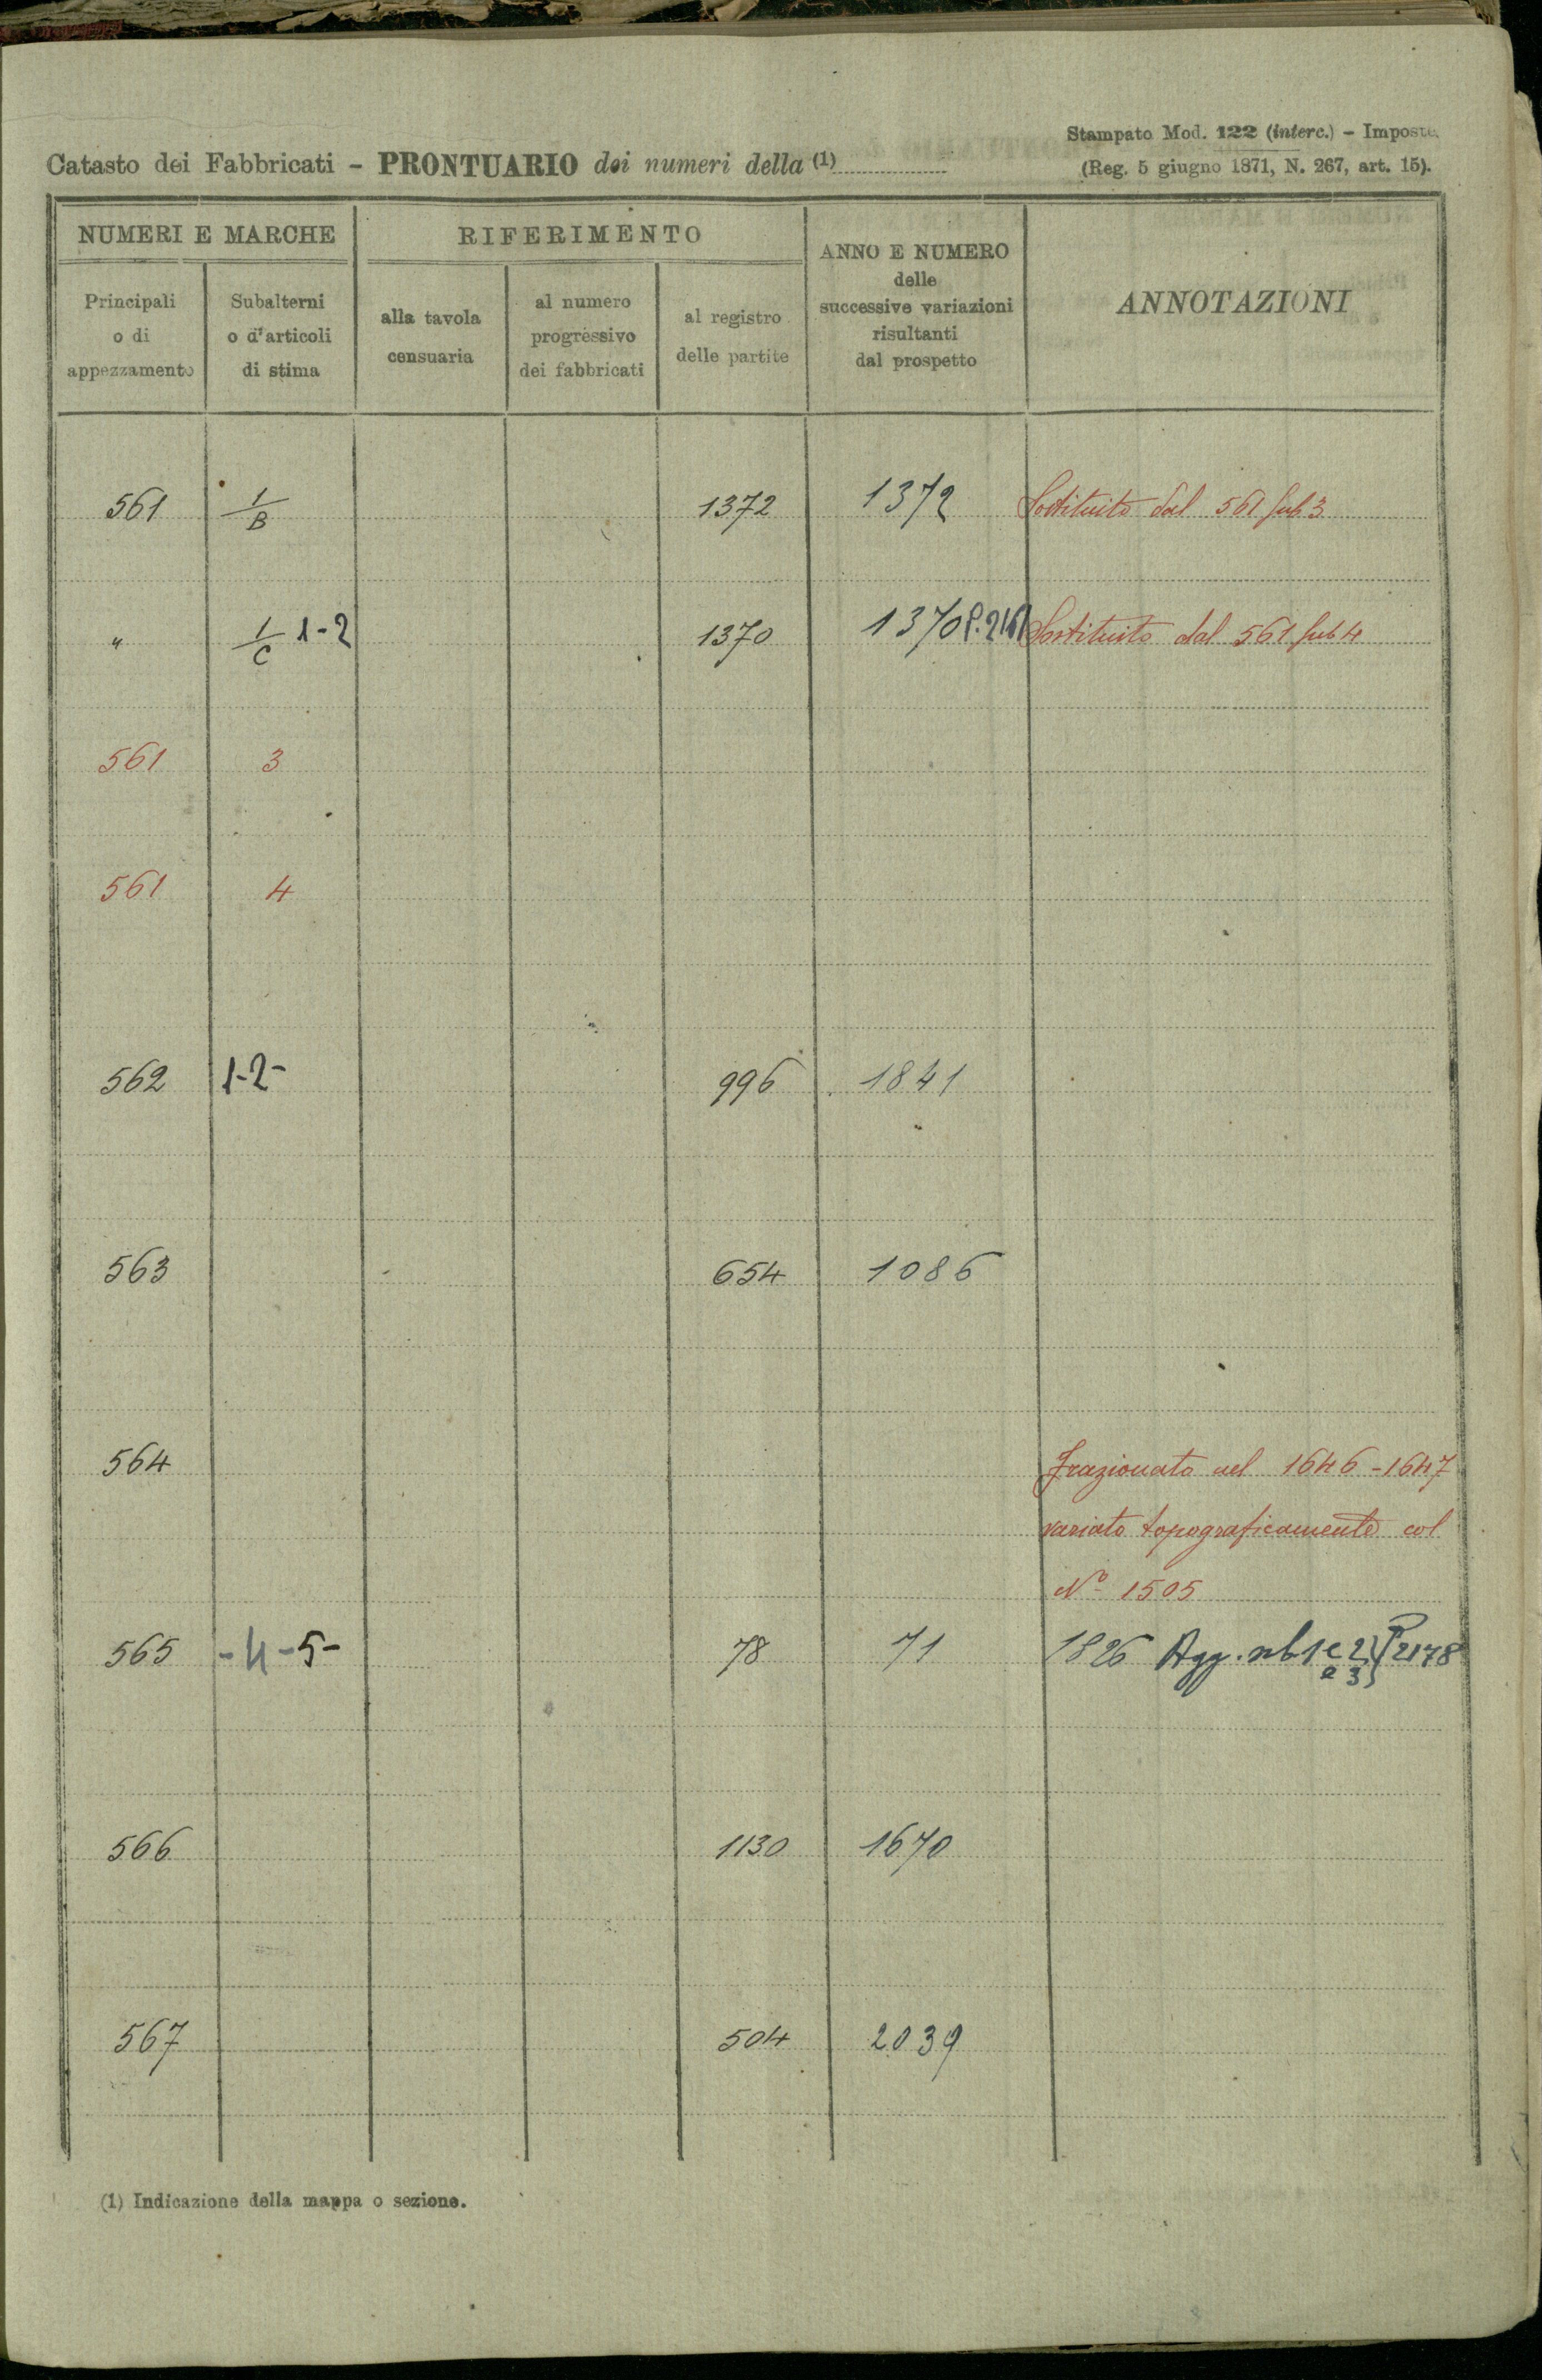 Stampato Mod. 122 (interc.) - Imposte.
Catasto dei Fabbricati - PRONTUARIO dei numeri della (1)
(Reg. 5 giugno 1871, N. 267, art. 15).
NUMERI E MARCHE
RIFERIMENTO
ANNO E NUMERO
delle
successive variazioni
risultanti
dal prospetto
ANNOTAZIONI
Principali
o di
appezzamento
Subalterni
o d'articoli
di stima
alla tavola
censuaria
al numero
progressivo
dei fabbricati
al registro
delle partite
561 1/B 1372 1372 Sostituito dal 561 sub 3
" 1/C 1-2 1370 1370 P. Sostituito dal 561 sub 4
561 3
561 4
562 1-2- 996 1841
563 654 1086
564 Frazionato nel 1646-1647
variato topograficamente col
N° 1505
565 -4-5- 78 71 1826 Agg. sub 1 e 2} P 2178
e 3
566 1130 1670
567 504 2039
(1) Indicazione della mappa o sezione.